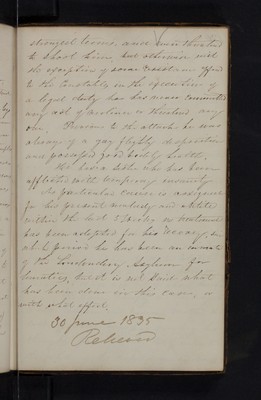 strongest terms, and
to shoot him, but otherwise with
the exception of some resistance offered
to the Constables in the execution of
a legal duty has has never committed
any act of violence or threatened any
one. Previous to the attack he was
always of a gay flighty disposition
and possessed good bodily health.
He has a sister who has been
afflicted with temporary insanity.
No particular cause is assigned
for his present malady and
within the last 3 weeks no treatment
has been adopted for his recovery, in
which period he has been an inmate
of the Londonderry Asylum for
Lunatics, but it is not said what
has been done in this case, or
with what effect.
30 June 1835
Relieved